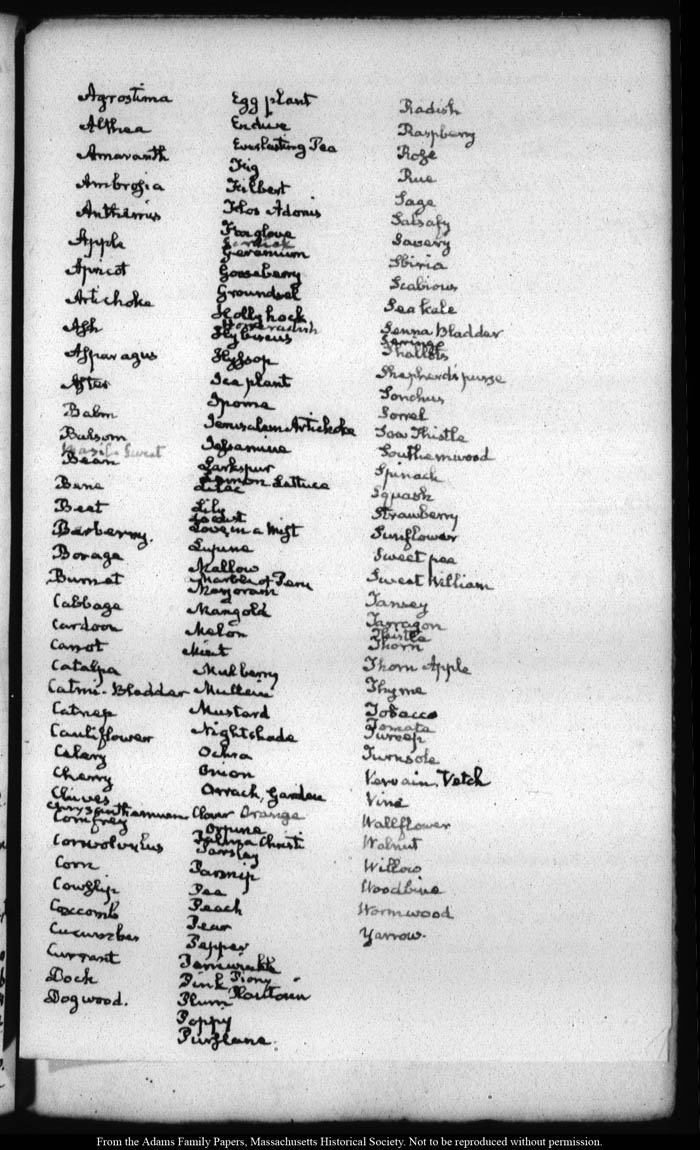 Agrostima
Althea
Amaranth
Ambrosia
Anthemis
Apple
Apricot
Artichoke
Ash
Asparagus
Aster
Balm
Balsom
Basil Sweet
Bean
Bene
Beet
Barberry.
Borage
Burnet
Cabbage
Cardoon
Carrot
Catalpa
Catmi-Bladder
Catnep
Cauliflower
Celery
Cherry
Chives
Chrysanthemum
Comfrey
Convolvulus
Corn
Cowslip
Coxcomb
Cucumber
Currant
Dock
Dogwood.
Egg plant
Endive
Everlasting Pea
Fig
Filbert
Flos Adonis
Foxglove
Geranium
Gooseberry
Groundsel
Hollyhock
Horseradish
Hybiscus
Hyssop
Ice plant
Ipome
Jerusalem Artichoke
Jessamine
Larkspur
Lemon Lettuce
Lilac
Lily
Locust
Love in a Mist
Lupine
Mallow
Marvel of Peru
Marjoram
Mangold
Melon
Mint
Mulberry
Mullein
Mustard
Nightshade
Ochra
Onion
Orrach, Garden
Orange
Orpine
Palma Christi
Parsley
Parsnip
Pea
Peach
Pear
Pepper
Periwinkle
Pink Piony
Plum Plantain
Poppy
Purslane.
Radish
Raspberry
Rose
Rue
Sage
Salsafy
Savery
Sbiria
Scabious
Sea kale
Senna Bladder
Seringo
Shallots
Shepherd's purse
Sonchus
Sorrel
Sow Thistle
Southernwood
Spinach
Squash
Strawberry
Sunflower
Sweet pea
Sweet William
Tansey
Tarragon
Thistle
Thorn
Thorn Apple
Thyme
Tobacco
Tomato
Turnep
Turnsole
Vervain, Vetch
Vine
Wallflower
Walnut
Willow
Woodbine
Wormwood
Yarrow.
From the Adams Family Papers, Massachusetts Historical Society. Not to be reproduced without permission.